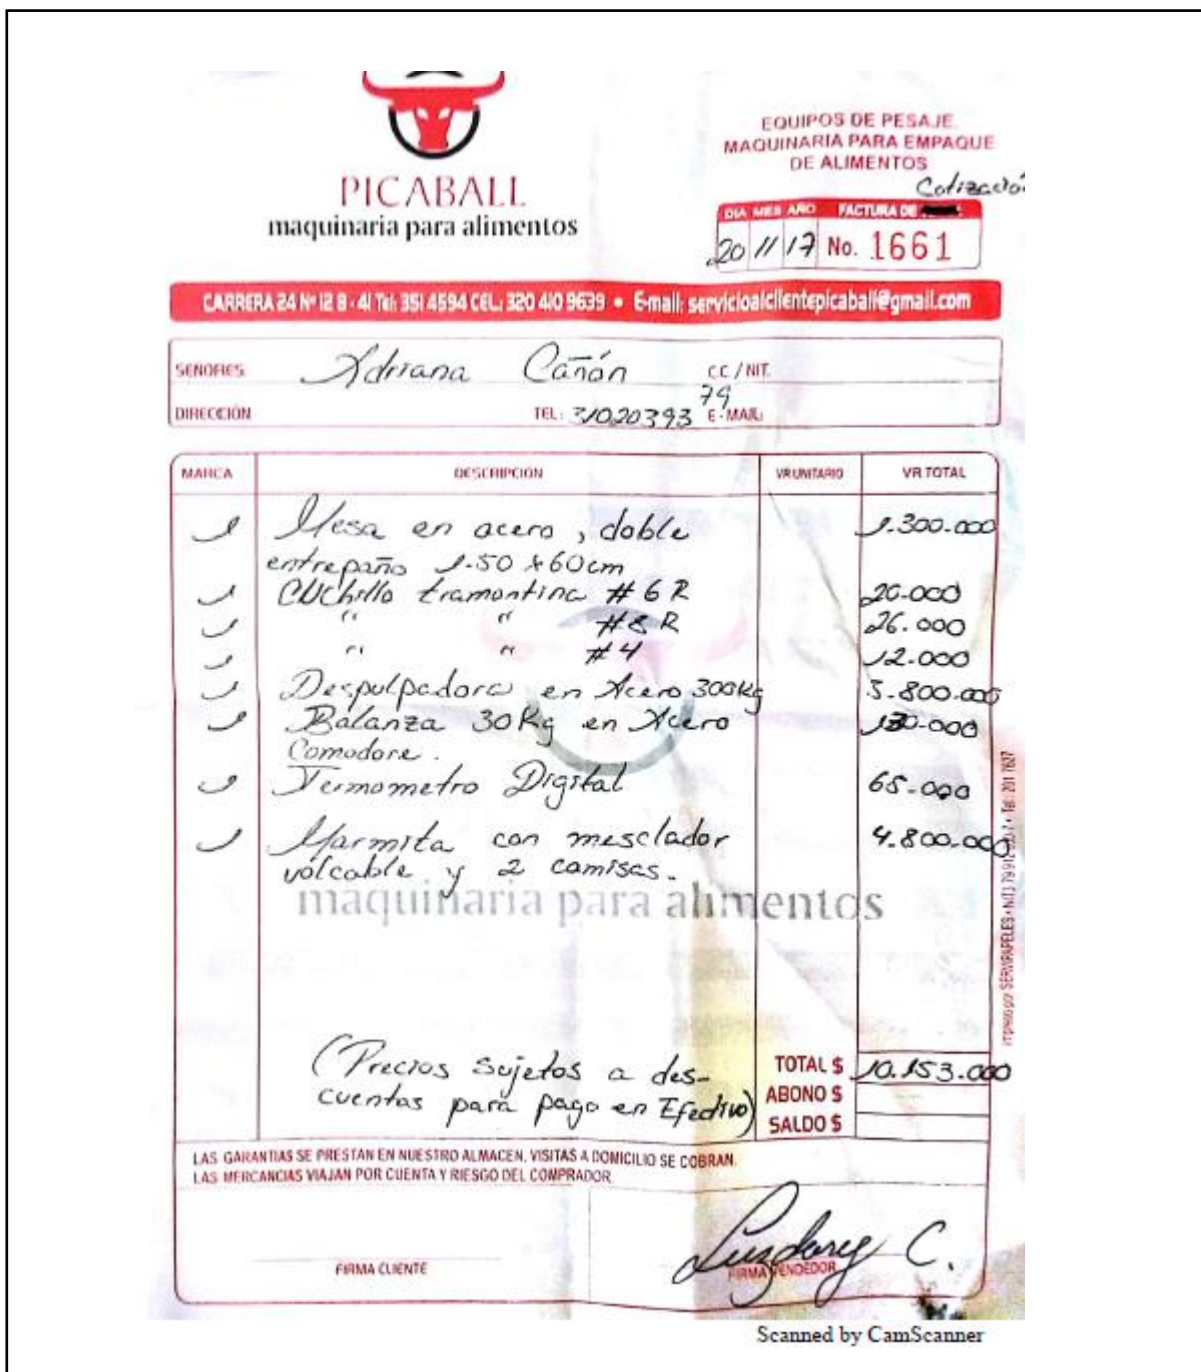 EQUIPOS DE PESAJE.
MAQUINARIA PARA EMPAQUE
DE ALIMENTOS
Cotización
PICABALL
maquinaria para alimentos
DIA MES AÑO FACTURA DE
20 11 17 No. 1661
CARRERA 24 Nº 12 B - 41 Tel: 351 4594 CEL: 320 410 9639 • E-mail: servicioalclientepicaball@gmail.com
SEÑORES Adriana Cañón C.C. / NIT.
DIRECCIÓN TEL: 3102039379 E-MAIL:
MARCA DESCRIPCION VR UNITARIO VR TOTAL
1 Mesa en acero, doble 1.300.000
entrepaño 1.50 x 60 cm
1 Cuchillo tramontina # 6 R 20.000
1 " " # 8 R 26.000
1 " " # 4 12.000
1 Despulpadora en Acero 300kg 3.800.000
1 Balanza 30 Kg en Acero 130.000
Comodore.
1 Termometro Digital 65.000
1 Marmita con mesclador 4.800.000
volcable y 2 camisas.
maquinaria para alimentos
(Precios sujetos a des-
cuentos para pago en Efectivo)
TOTAL $ 10.153.000
ABONO $
SALDO $
LAS GARANTIAS SE PRESTAN EN NUESTRO ALMACEN, VISITAS A DOMICILIO SE COBRAN.
LAS MERCANCIAS VIAJAN POR CUENTA Y RIESGO DEL COMPRADOR.
Luzdarey C.
FIRMA CLIENTE FIRMA VENDEDOR
Impreso por SERVIPAPELES • Tel: 201 7627
Scanned by CamScanner